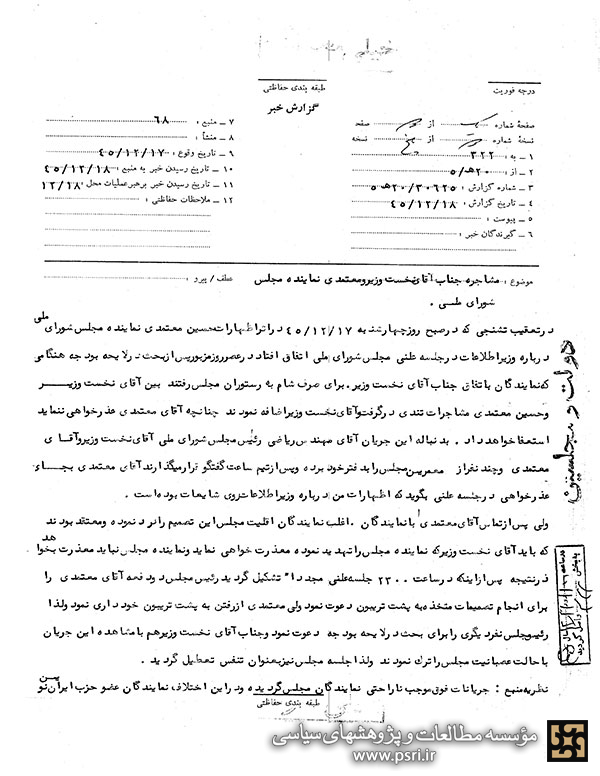 خیلی
درجه فوریت
طبقه بندی حفاظتی
گزارش خبر
صفحه شماره یک از دو صفحه
نسخه شماره از پنج نسخه
۱ ـ به : ۳۲۲
۲ ـ از : ۲۰ هـ ۵
۳ ـ شماره گزارش : ۲۰/۳۰۶۲۵ هـ ۵
۴ ـ تاریخ گزارش : ۴۵/۱۲/۱۸
۵ ـ پیوست :
۶ ـ گیرندگان خبر :
۷ ـ منبع : ۶۸
۸ ـ منشأ :
۹ ـ تاریخ وقوع : ۴۵/۱۲/۱۷
۱۰ ـ تاریخ رسیدن خبر به منبع : ۴۵/۱۲/۱۸
۱۱ ـ تاریخ رسیدن خبر برهبرعملیات محل : ۱۲/۱۸
۱۲ ـ ملاحظات حفاظتی :
موضوع : مشاجره جناب آقای نخست وزیر و معتمدی نماینده مجلس عطف / پیرو :
شورای ملی .
در تعقیب تشنجی که در صبح روز چهارشنبه ۴۵/۱۲/۱۷ در اثر اظهارات حسین معتمدی نماینده مجلس شورای ملی
درباره وزیر اطلاعات در جلسه علنی مجلس شورای ملی اتفاق افتاد در عصر روز مزبور پس از بحث در لایحه بودجه هنگامی
که نمایندگان باتفاق جناب آقای نخست وزیر . برای صرف شام به رستوران مجلس رفتند بین آقای نخست وزیر
و حسین معتمدی مشاجرات تندی در گرفت و آقای نخست وزیر اضافه نمودند چنانچه آقای معتمدی عذرخواهی ننماید
استعفا خواهد داد . بدنباله این جریان آقای مهندس ریاضی رئیس مجلس شورای ملی آقای نخست وزیر و آقای
معتمدی و چند نفر از معمرین مجلس را به دفتر خود برده و پس از نیم ساعت گفتگو قرار میگذارند آقای معتمدی بجای
عذرخواهی در جلسه علنی بگوید که اظهارات من درباره وزیر اطلاعات روی شایعات بوده است .
ولی پس از تماس آقای معتمدی با نمایندگان . اغلب نمایندگان اقلیت مجلس این تصمیم را رد نموده و معتقد بودند
که باید آقای نخست وزیر که نماینده مجلس را تهدید نموده معذرت خواهی نماید و نماینده مجلس نباید معذرت بخواهد
در نتیجه پس از اینکه در ساعت ۲۳۰۰ جلسه علنی مجددا" تشکیل گردید رئیس مجلس دو دفعه آقای معتمدی را
برای انجام تصمیمات متخذه به پشت تریبون دعوت نمود ولی معتمدی از رفتن به پشت تریبون خودداری نمود و لذا
رئیس مجلس نفر دیگری را برای بحث در لایحه بودجه دعوت نمود و جناب آقای نخست وزیر هم با مشاهده این جریان
با حالت عصبانیت مجلس را ترک نمودند و لذا جلسه مجلس نیز بعنوان تنفس تعطیل گردید .
نظریه منبع : جریانات فوق موجب ناراحتی نمایندگان مجلس گردیده و در این اختلاف نمایندگان عضو حزب ایران نوین
طبقه بندی حفاظتی
دولت و مجلسین
مؤسسه مطالعات و پژوهشهای سیاسی
www.psri.ir